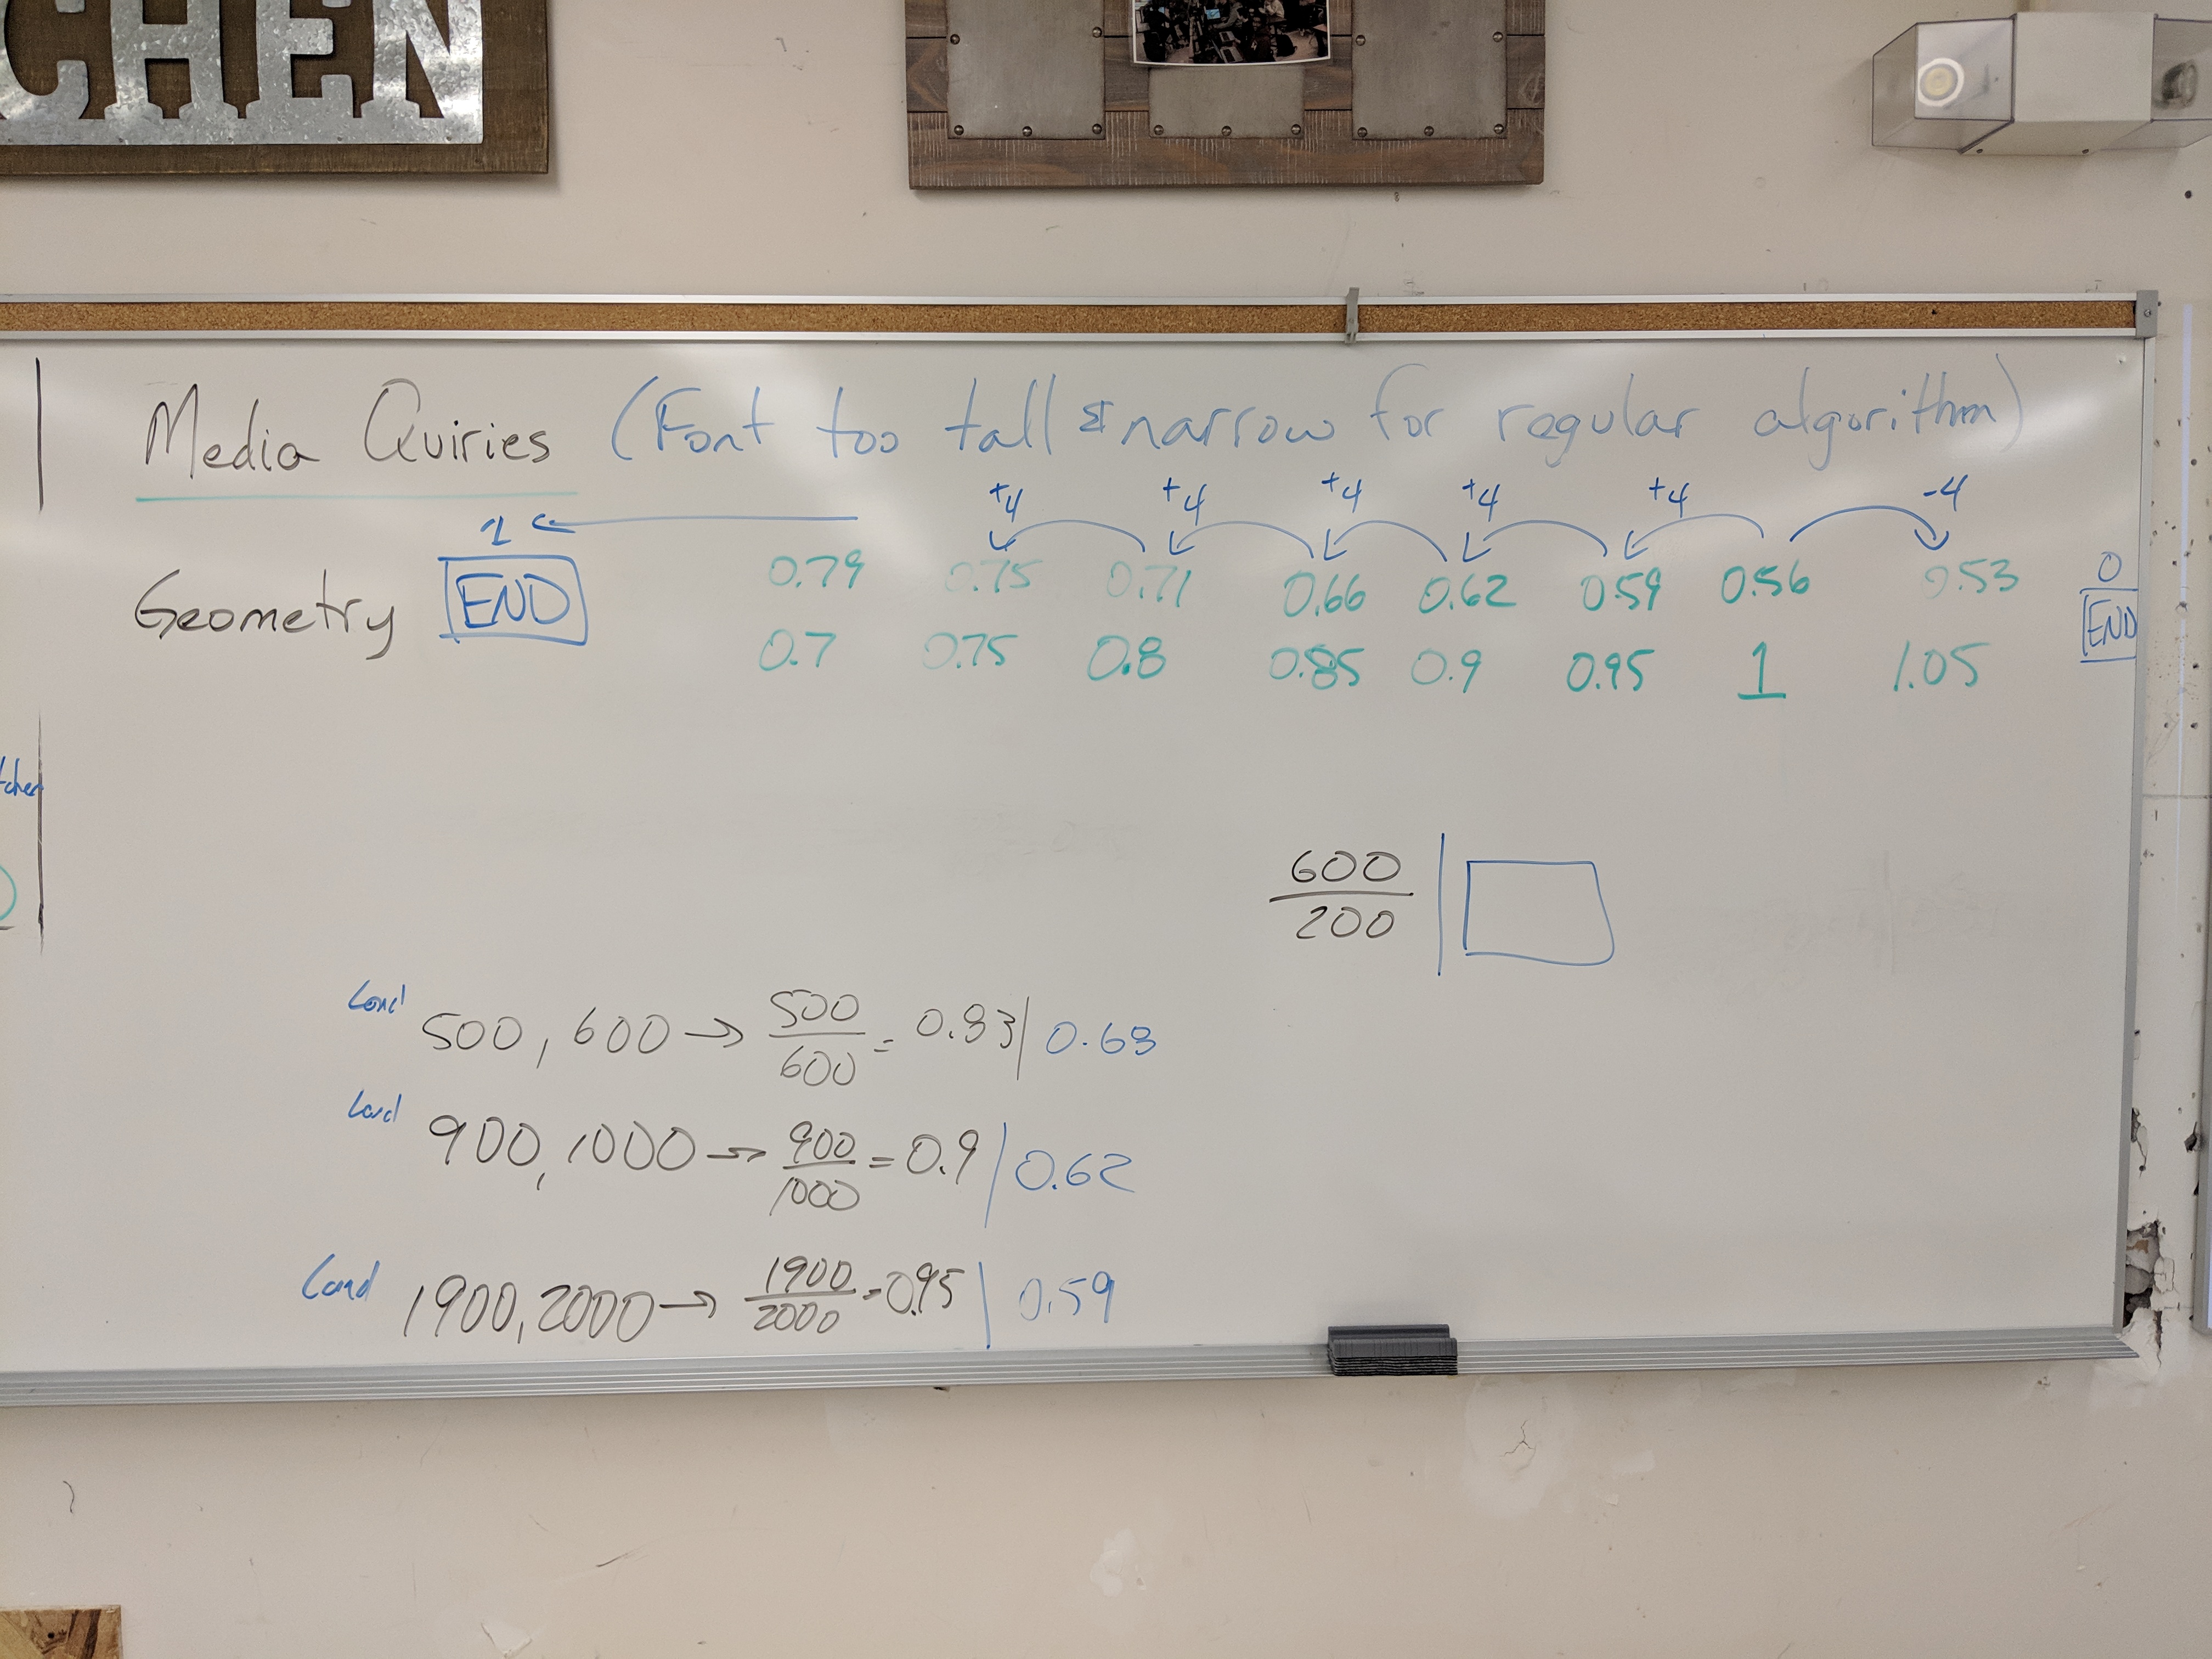 CHEN
Media Quiries (Font too tall & narrow for regular algorithm)
+4 +4 +4 +4 +4 -4
1
Geometry END 0.79 0.75 0.71 0.66 0.62 0.59 0.56 0.53 0
END
0.7 0.75 0.8 0.85 0.9 0.95 1 1.05
tchen
600
200
500, 600 → 500/600 = 0.83 | 0.68
900, 1000 → 900/1000 = 0.9 | 0.62
1900, 2000 → 1900/2000 = 0.95 | 0.59